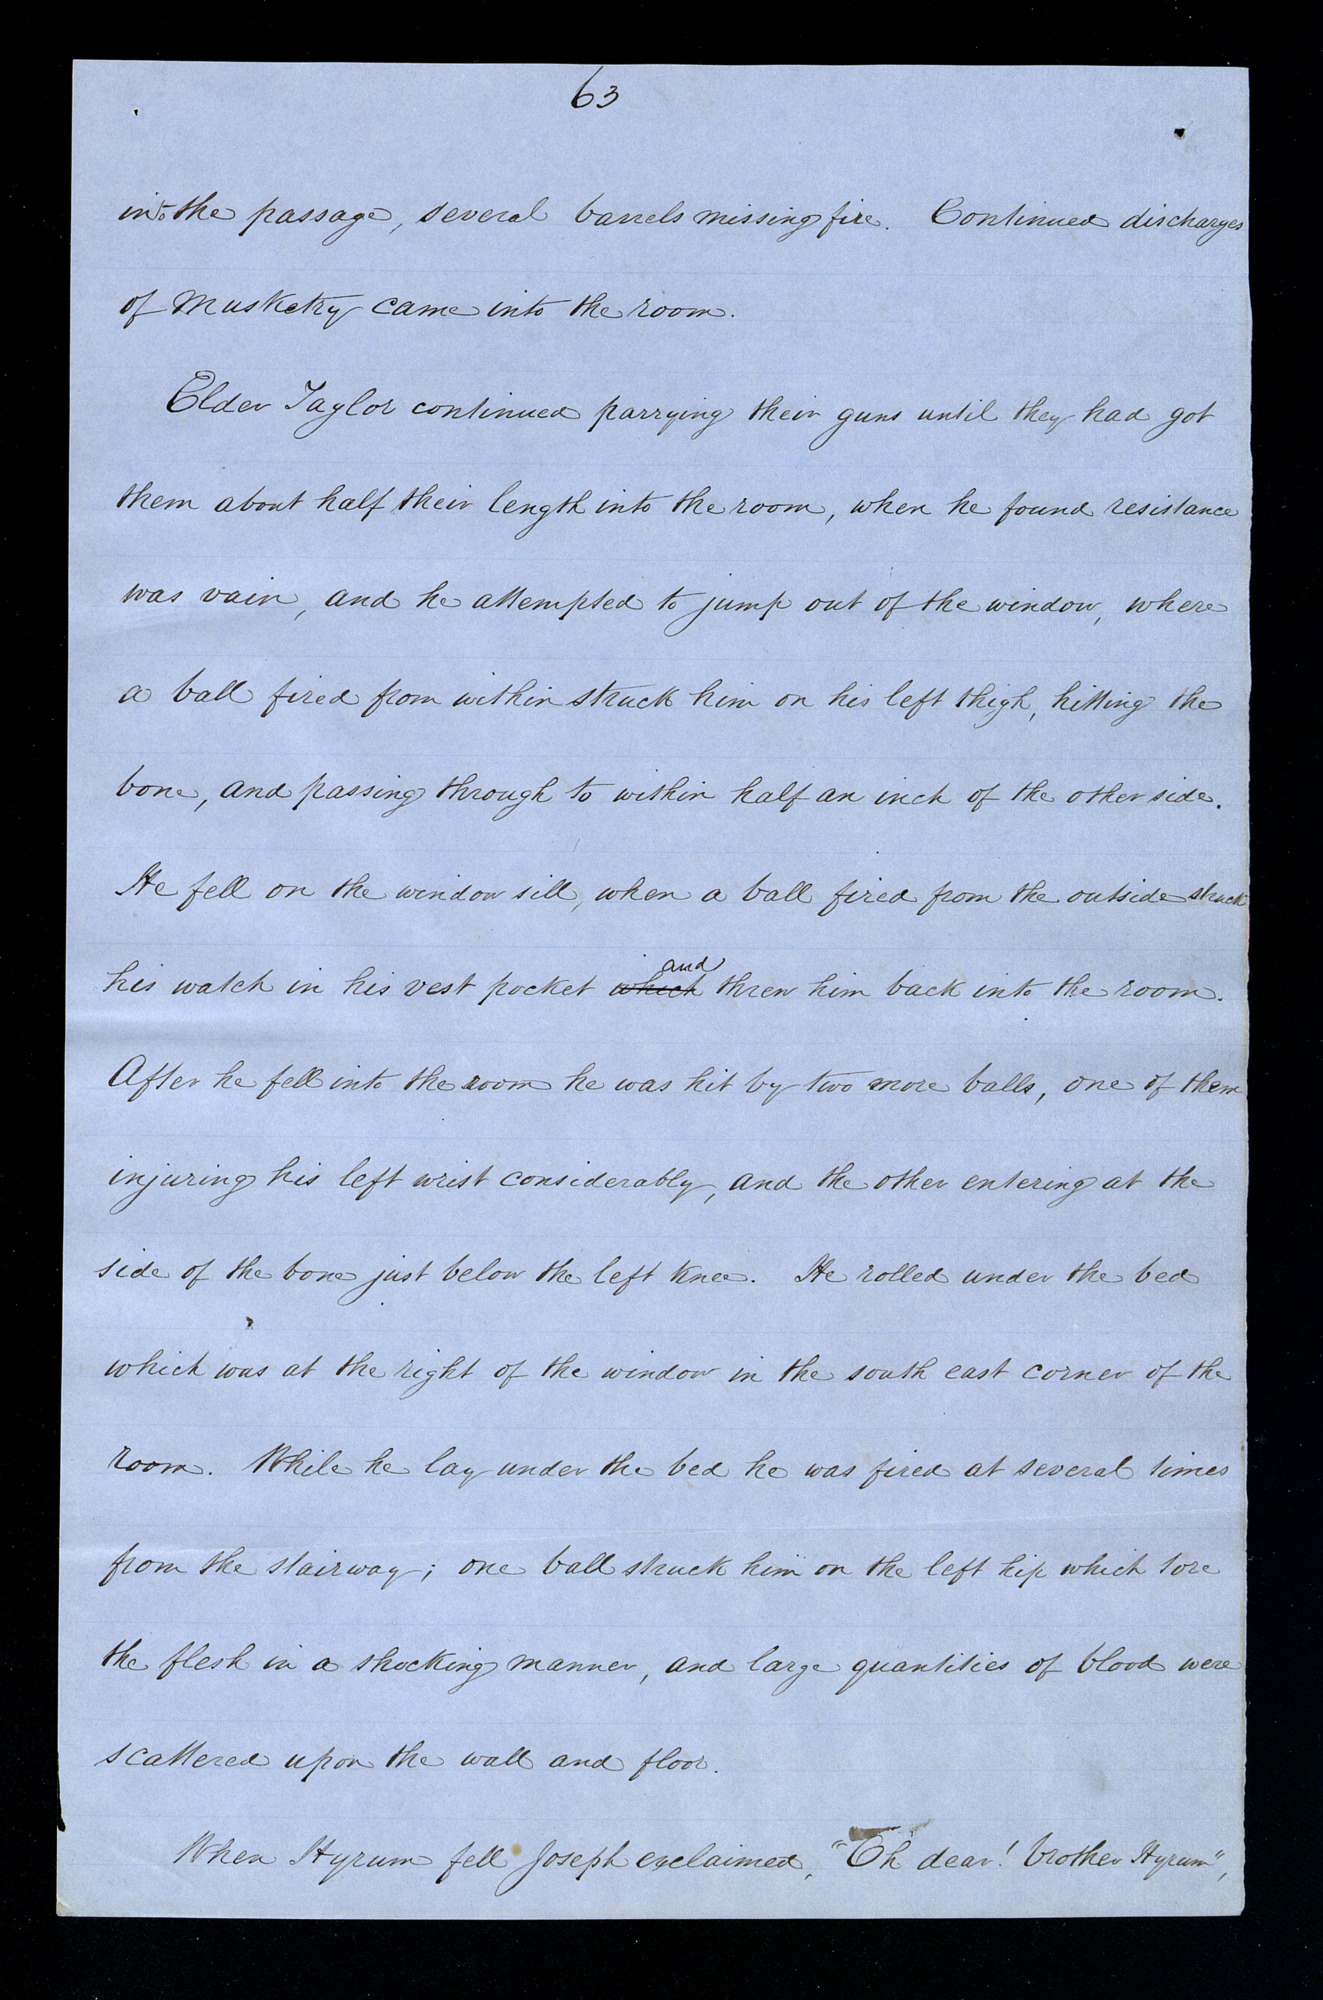 63
into the passage, several barrels missing fire. Continued discharges
of Musketry came into the room.
Elder Taylor continued parrying their guns until they had got
them about half their length into the room, when he found resistance
was vain, and he attempted to jump out of the window, where
a ball fired from within struck him on his left thigh, hitting the
bone, and passing through to within half an inch of the other side.
He fell on the window sill, when a ball fired from the outside struck
and
his watch in his vest pocket which threw him back into the room.
After he fell into the room he was hit by two more balls, one of them
injuring his left wrist considerably, and the other entering at the
side of the bone just below the left knee. He rolled under the bed
which was at the right of the window in the south east corner of the
room. While he lay under the bed he was fired at several times
from the stairway; one ball struck him on the left hip which tore
the flesh in a shocking manner, and large quantities of blood were
scattered upon the wall and floor.
When Hyrum fell Joseph exclaimed, "Oh dear! brother Hyrum",